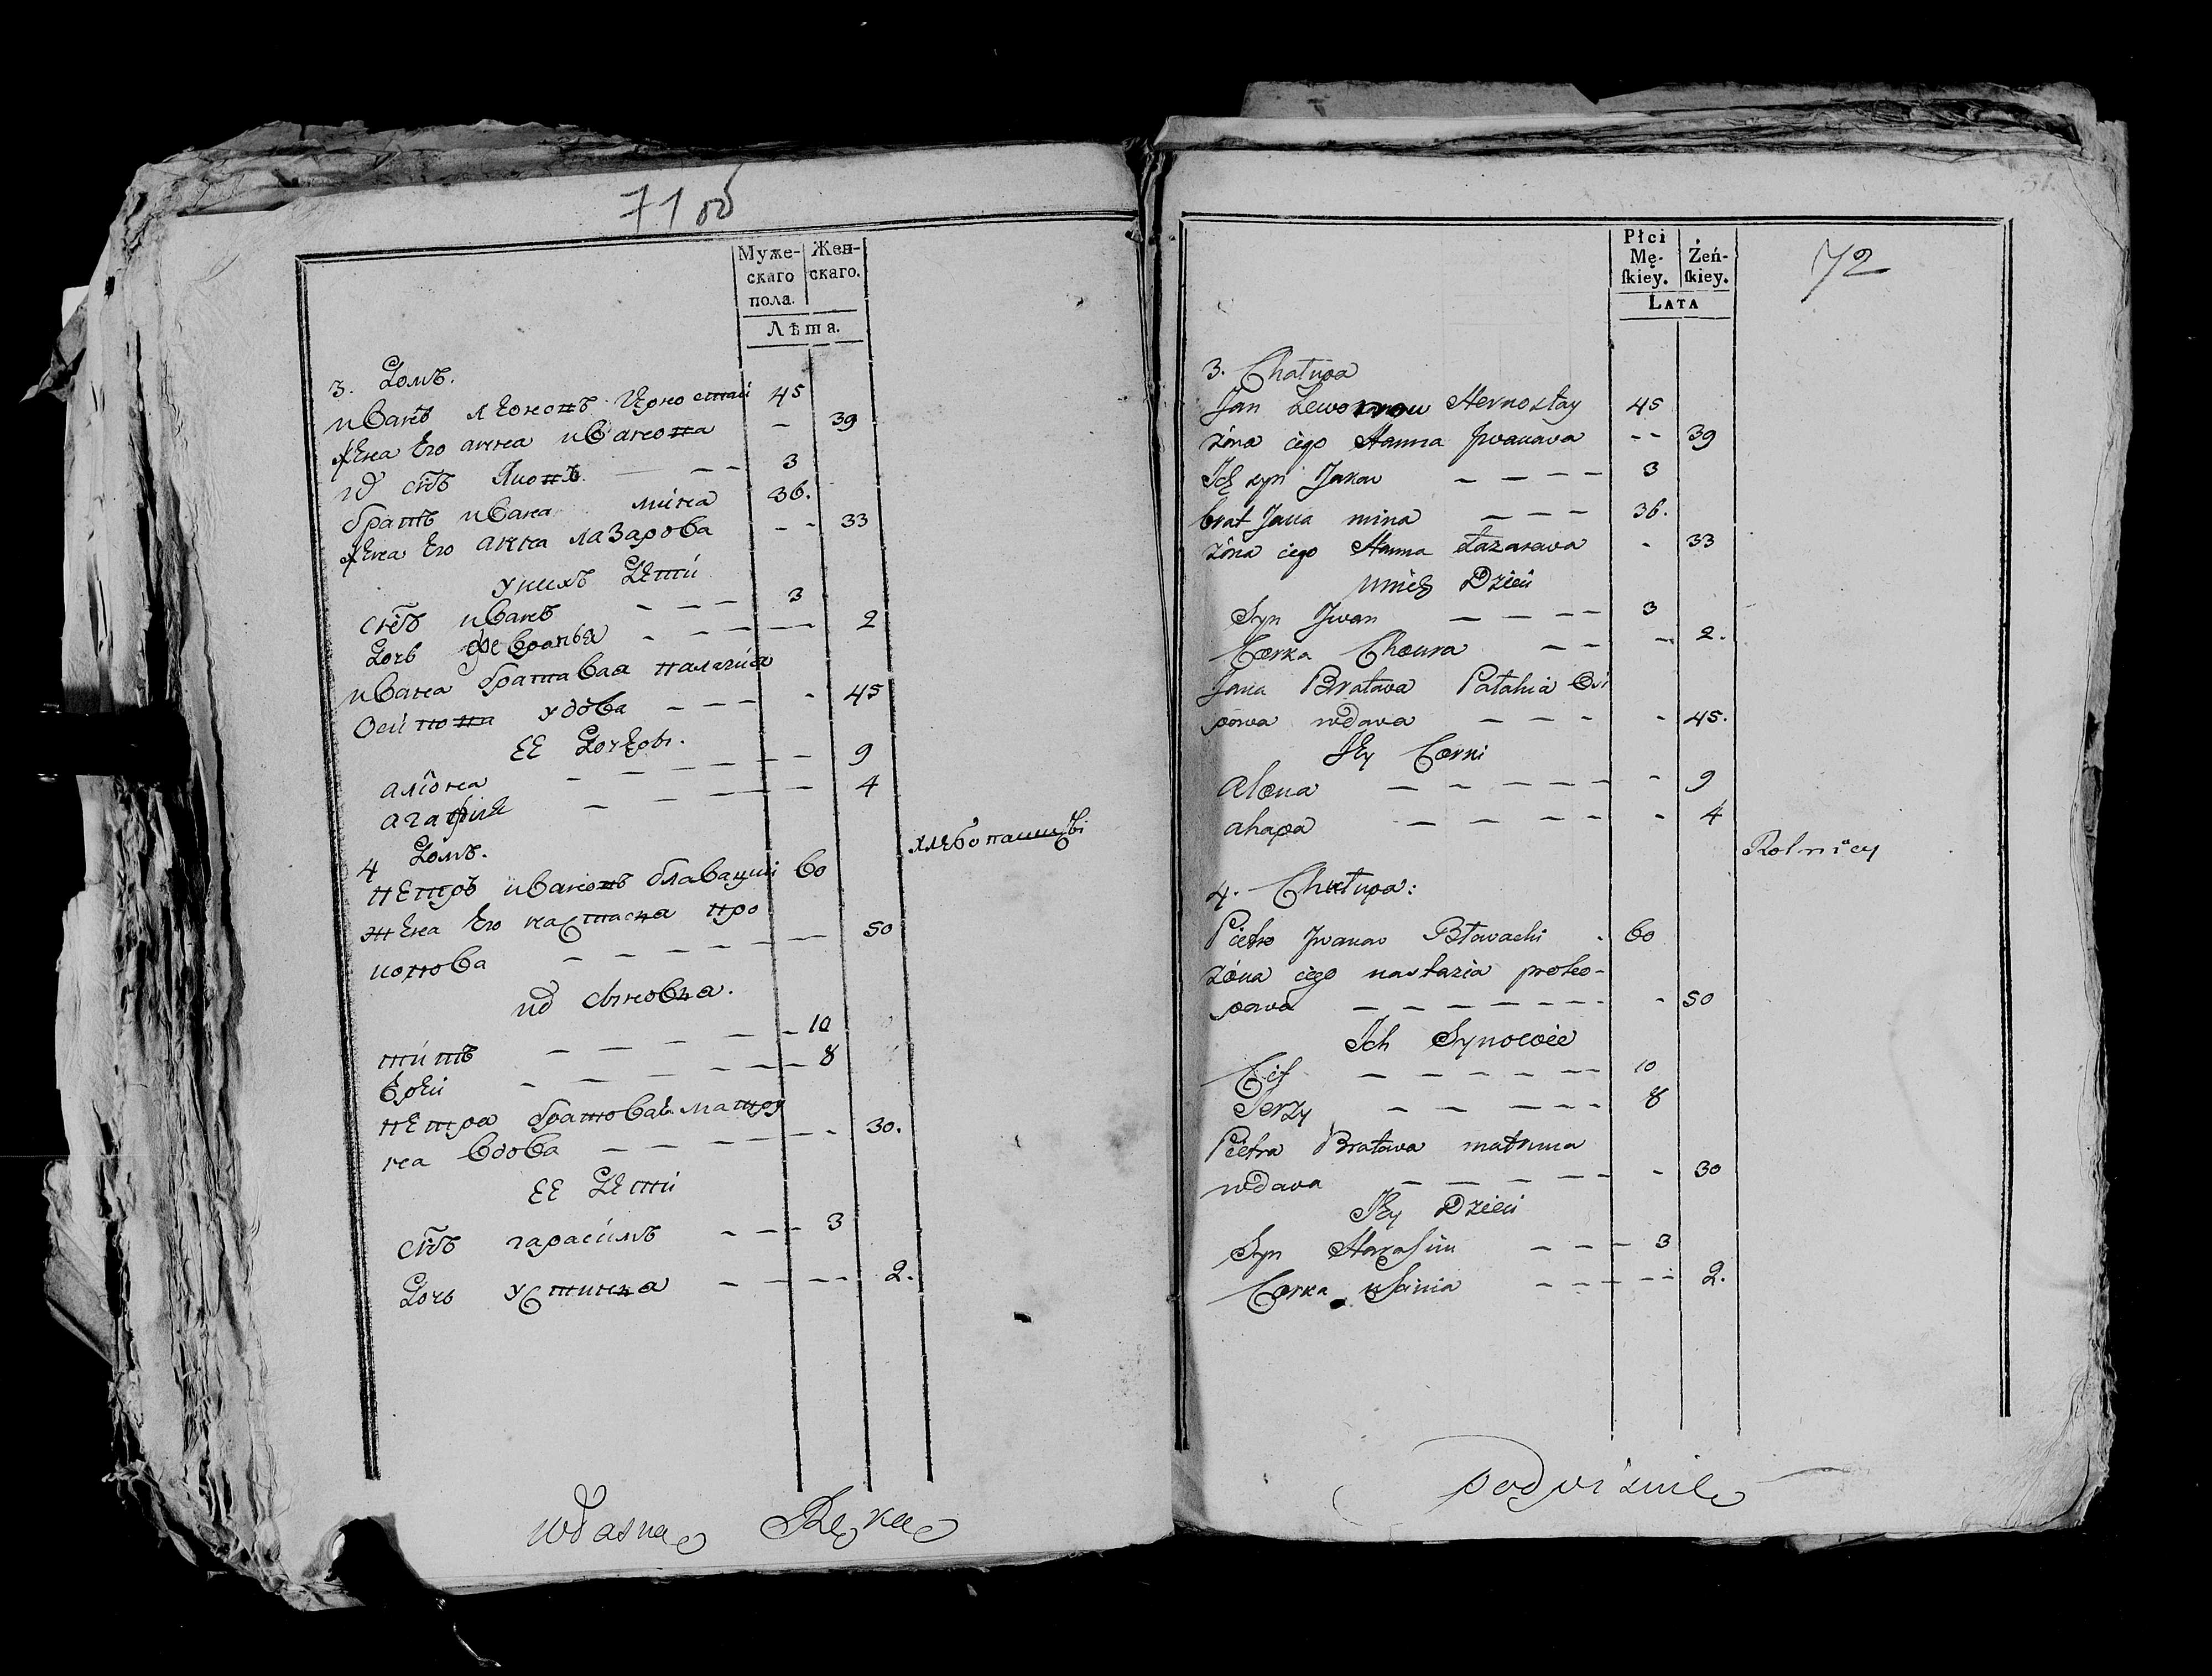 71 об
Муже-
скаго
пола.
Жен-
скаго.
Лѣта.
3. Домъ.
иванъ леоновъ Герностай 45
жена Его анна иванова — 39
ихъ снъ Яковъ — — 3
братъ ивана мина 36.
жена Его анна лазарова - - 33
у нихъ Дети
снъ иванъ — — — 3
Дочь февронья - — — — 2
ивана братавая палагия
Осипова удова — — — - 45
ЕЕ Дочери.
алiона — — — — — — 9
агафия — — — — — 4
4 Домъ.
хлебопашцы
петръ ивановъ блавацки 60
жена Его настасия про
копова — — — — — — 50
их сыновя.
титъ — — — — — 10
Ерей - — — — — — 8
петра братовая матру
на вдова — — — — — - 30.
ЕЕ Дети
снъ гарасимъ — — — 3
Дочь устиния — — — — 2.
własnae Rękae
51.
72
Płci
Mę-
ſkiey.
Żeń-
ſkiey.
LATA
3. Chałupa
Jan Lewonow Hernostay 45
żona iego Hanna Jwanawa - - 39
Ich syn Jakow — — — — 3
brat Jana mina — — — 36.
żona iego Hanna Łazarawa - 33
u nich Dzieci
Syn Jwan — — — — 3
Corka Choura — — — 2.
Jana Bratawa Patahia Osi
powa wdawa — — — - 45.
Jey Corki
Alona — — — — — - 9
ahapa — — — — - 4
Rolnicy
4. Chałupa:
Pietro Jwanow Bławacki . 60
żona iego nastazia proko-
pawa — — — — — — - 50
Ich Synowie
Cit — — — — — — 10
Jerzy — — — — — 8
Pietra Bratawa matruna
wdawa — — — — — - 30
Jey Dzieci
Syn Harasim — — — 3
Corka uscinia — — — — 2.
podpisuie